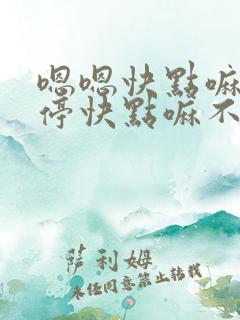 嗯嗯快點嘛
停快點嘛不
萨利姆
未经同意禁止转载